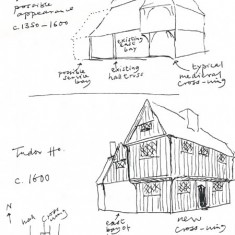 possible
appearance
c.1350-1600
existing
east
bay
possible
service
bay
existing
hall cross
typical
medieval
cross-wing
Tudor Ho.
c. 1600
N
hall
cross
wing
east
bay of
new
cross-wing